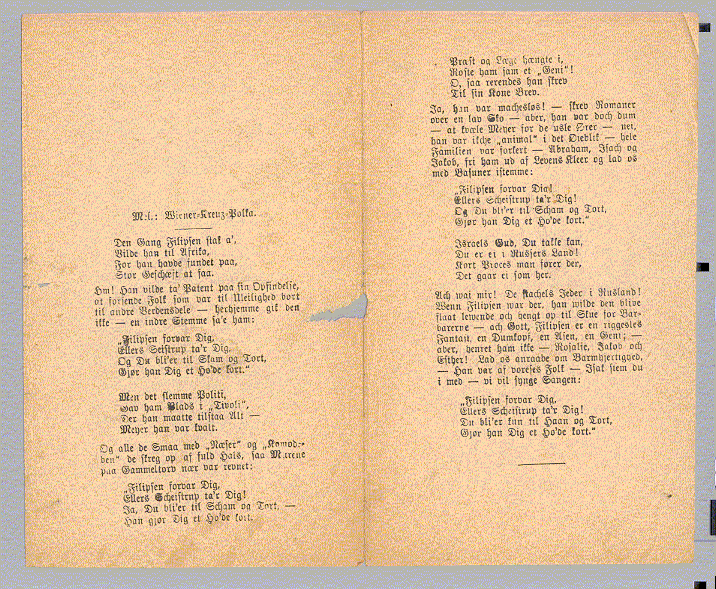 Mel.: Wiener-Kreuz-Polka.
Den Gang Filipsen stak a',
Vilde han til Afrika,
For han havde fundet paa,
Stor Geschæft at faa.
Hm! Han vilde ta' Patent paa sin Opfindelse,
at forsende Folk som var til Uleilighed bort
til andre Verdensdele — herhjemme gik den
ikke — en indre Stemme sa'e ham:
„Filipsen forvar Dig,
Ellers Seistrup ta'r Dig,
Og Du bli'er til Skam og Tort,
Gjør han Dig et Ho'de kort.“
Men det slemme Politi,
Gav ham Plads i „Tivoli“,
Der han maatte tilstaa Alt —
Meyer han var kvalt.
Og alle de Smaa med „Næser“ og
de skreg op af fuld Hals, saa Murene
paa Gammeltorv nær var revnet:
„Filipsen forvar Dig,
Ellers Scheistrup ta'r Dig!
Ja, Du bli'er til Scham og Tort, —
Han gjør Dig et Ho'de kort.
Præst og Læge hængte i,
Roste ham som et „Geni“!
O, saa rørendes han skrev
Til sin Kone Brev.
Ja, han var machesløs! — skrev Romaner
over en lav Sko — aber, han var doch dum
— at kvæle Meyer for de usle Ører — nei,
han var ikche „animal“ i det Øieblik — hele
Familien var forkert — Abraham, Isach og
Jakob, fri ham ud af Levens Kleer og lad os
med Basuner istemme:
„Filipsen forvar Dig!
Ellers Scheistrup ta'r Dig!
Og Du bli'er til Scham og Tort,
Gjør han Dig et Ho'de kort.“
Israels Gud, Du takke kan,
Du er ei i Russers Land!
Kort Proces man fører der,
Det gaar ei som her.
Ach wai mir! De stachels Jeder i Rusland!
Wenn Filipsen war der, han wilde den blive
slaat lewende och hengt op til Skue for Bar-
barerne — ach Gott, Filipsen er en riggesles
Fantast, en Dumkopf, en Asen, en Geni; —
aber, henret ham ikke — Rosalie, Jakob och
Esther! Lad os anraabe om Barmhjertighed,
— Han var af voreses Folk — Isak stem du
i med — vi vil synge Sangen:
„Filipsen forvar Dig,
Ellers Scheistrup ta'r Dig!
Du bli'er kun til Haan og Tort,
Gjør han Dig et Ho'de kort.“